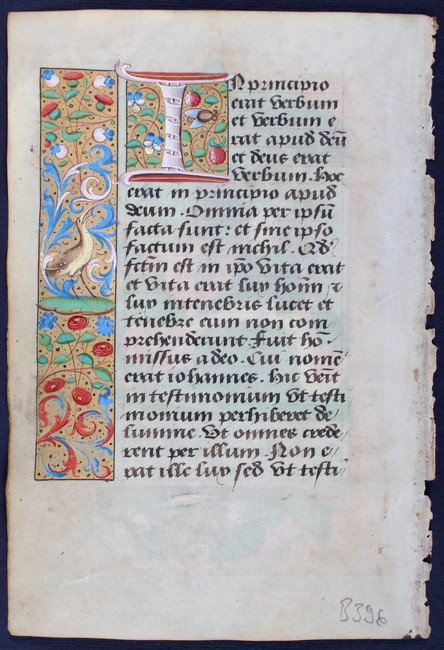 IN principio
erat verbum
et verbum e
rat apud deū
et deus erat
verbum. Hoc
erat in principio apud
deum. Omnia per ipsū
facta sunt: et sine ipso
factum est nichil. Qd̄
fctm̄ est in ip̄o vita erat
et vita erat lux homī ⁊
lux in tenebris lucet et
tenebre eam non com
prehenderunt. Fuit hō
missus a deo. Cui nomē
erat iohannes. hic venīt
in testimonium vt testi
monium perhiberet de
lumine. Vt omnes crede
rent per illum. Non e
rat ille lux sed vt testi
B396